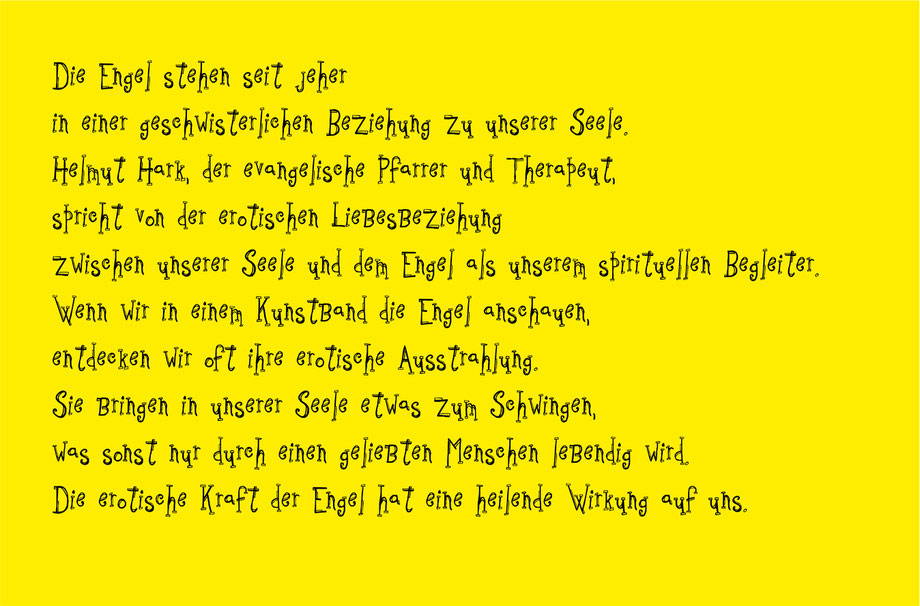 Die Engel stehen seit jeher
in einer geschwisterlichen Beziehung zu unserer Seele.
Helmut Hark, der evangelische Pfarrer und Therapeut,
spricht von der erotischen Liebesbeziehung
zwischen unserer Seele und dem Engel als unserem spirituellen Begleiter.
Wenn wir in einem Kunstband die Engel anschauen,
entdecken wir oft ihre erotische Ausstrahlung.
Sie bringen in unserer Seele etwas zum Schwingen,
was sonst nur durch einen geliebten Menschen lebendig wird.
Die erotische Kraft der Engel hat eine heilende Wirkung auf uns.